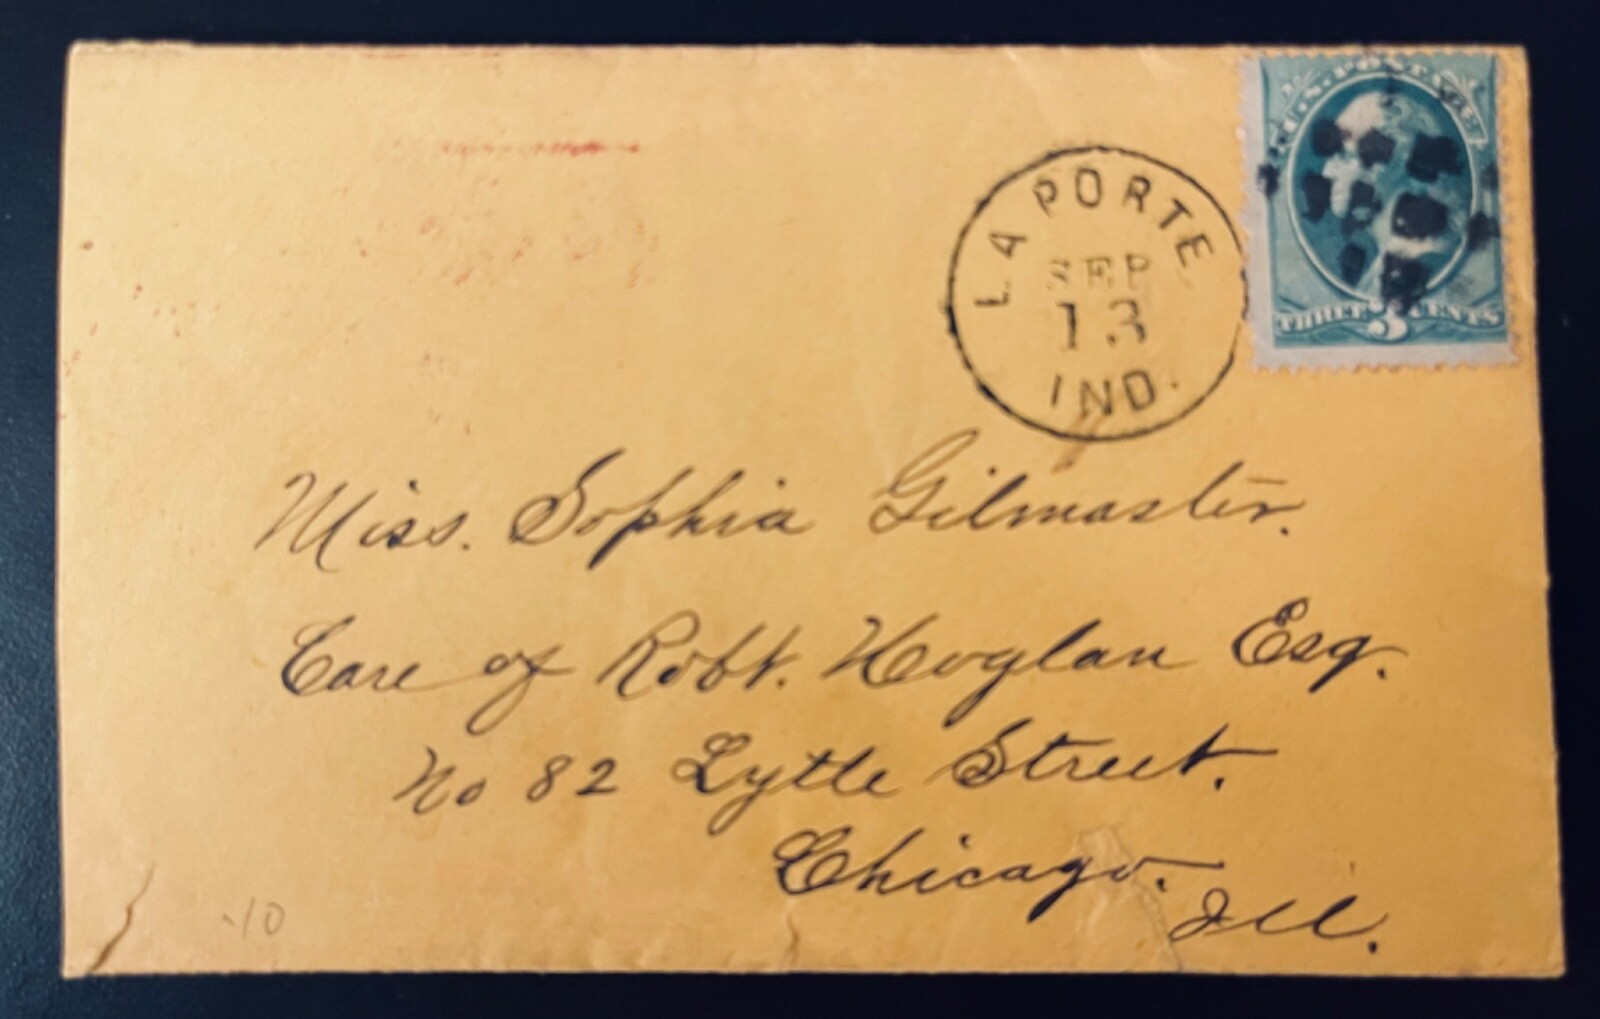 U.S. POSTAGE
THREE 3 CENTS
LA PORTE
SEP
13
IND.
Miss. Sophia Gilmaster.
Care of Robt. Hoglan Esq.
No 82 Lytle Street.
Chicago.
Ill.
.10